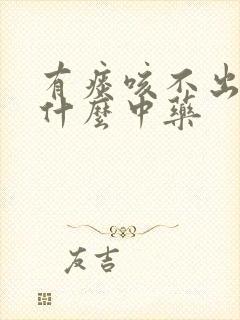 有痰咳不出
什麼中藥
友吉